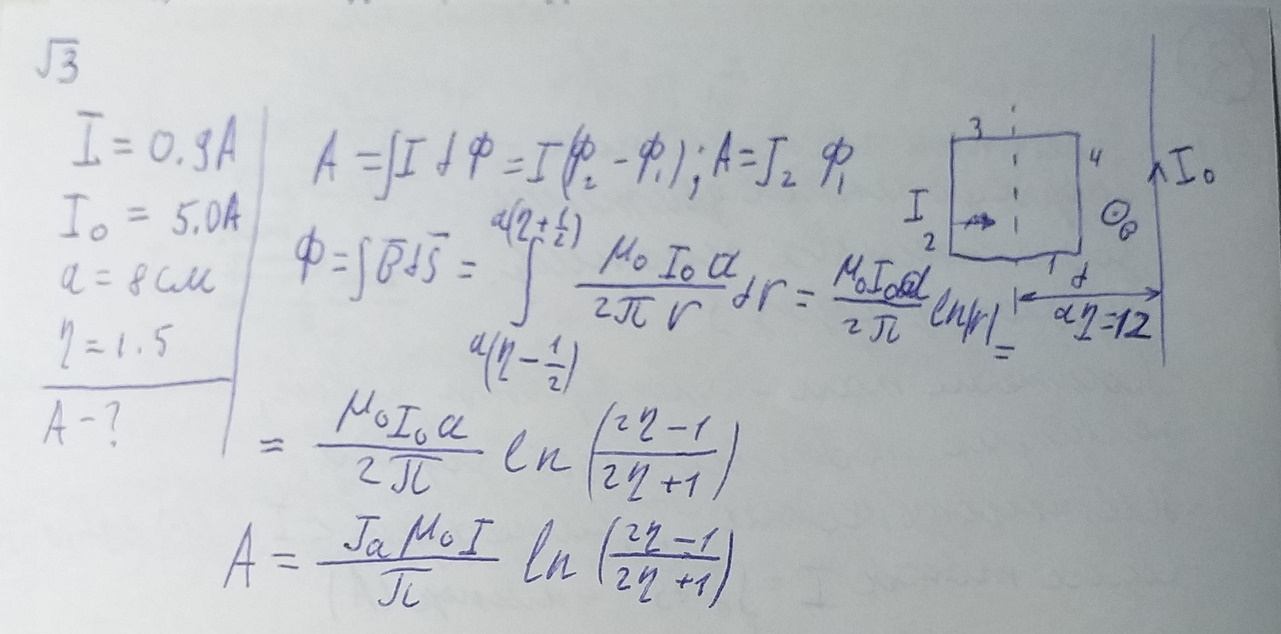 √3
I = 0.9A
I₀ = 5.0A
a = 8см
η = 1.5
A - ?
A = ∫I dΦ = I(Φ₂ - Φ₁); A = I₂ Φ₁
Φ = ∫B̄dS̄ = ∫_{a(η-1/2)}^{a(η+1/2)} μ₀ I₀ a / 2π r dr = μ₀ I₀ a / 2π ln|r| =
= μ₀ I₀ a / 2π ln((2η-1)/(2η+1))
A = I a μ₀ I / π ln((2η-1)/(2η+1))
3
4
I₀
I
2
B
1
aη=12